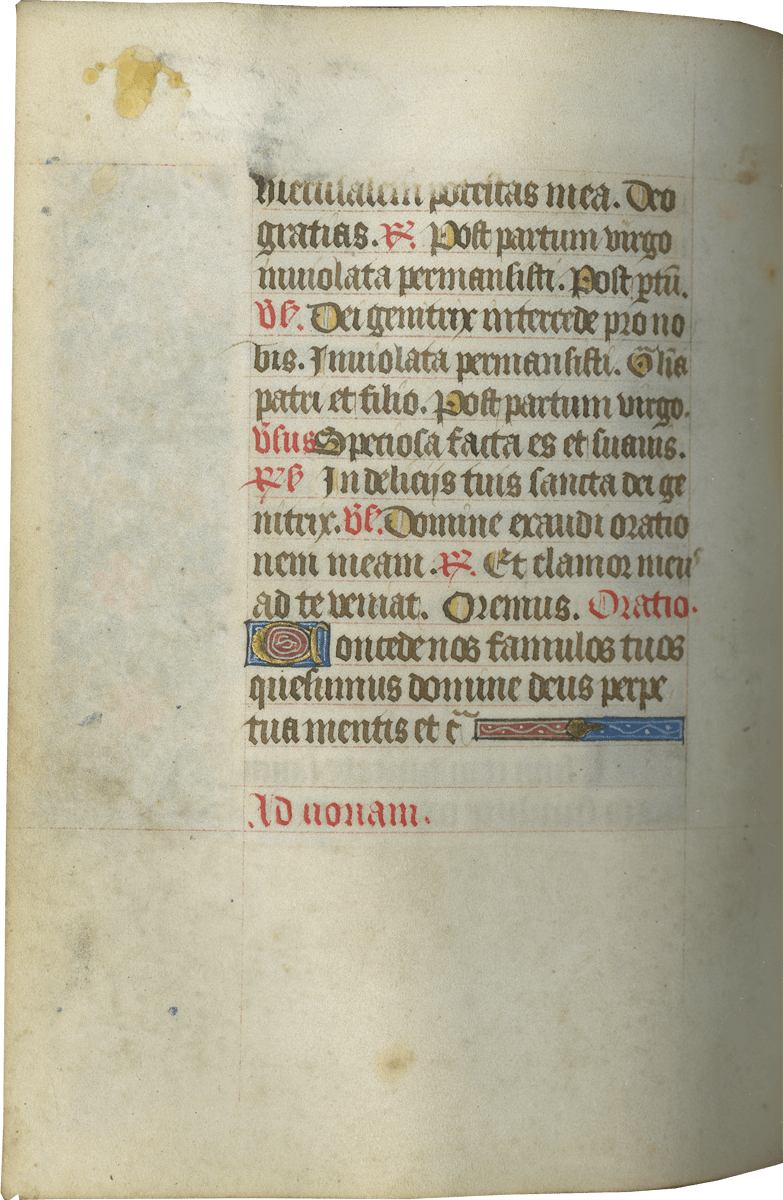 hierusalem potestas mea. Deo
gratias. R. Post partum virgo
inuiolata permansisti. Post ptū.
v̄s. Dei genitrix intercede pro no
bis. Inuiolata permansisti. Gl̄ia
patri et filio. Post partum virgo.
v̄sus Speciosa facta es et suauis.
Rs In delicijs tuis sancta dei ge
nitrix. v̄s. Domine exaudi oratio
nem meam. R. Et clamor meus
ad te veniat. Oremus. Oratio.
Concede nos famulos tuos
quesumus domine deus perpe
tua mentis et c̄
Ad nonam.